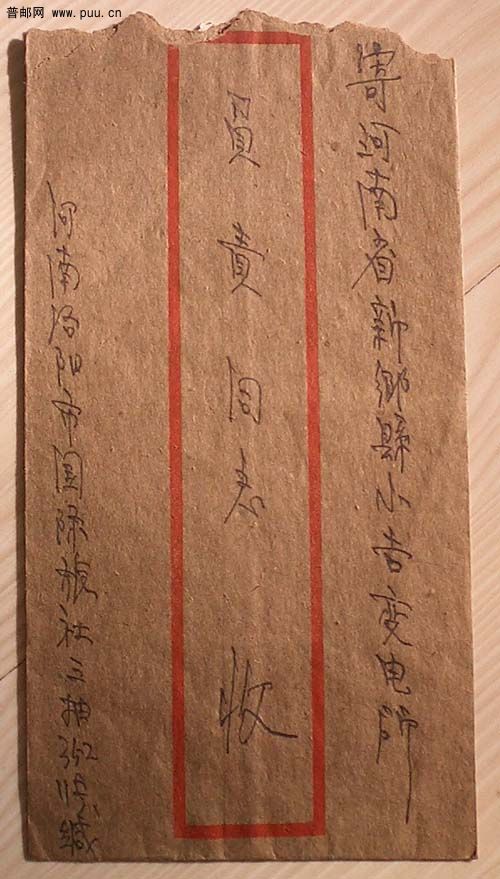 普邮网 www.puu.cn
寄河南省新鄉縣小吉变电所
貴同志 收
河南洛阳市国际旅社三
352 缄